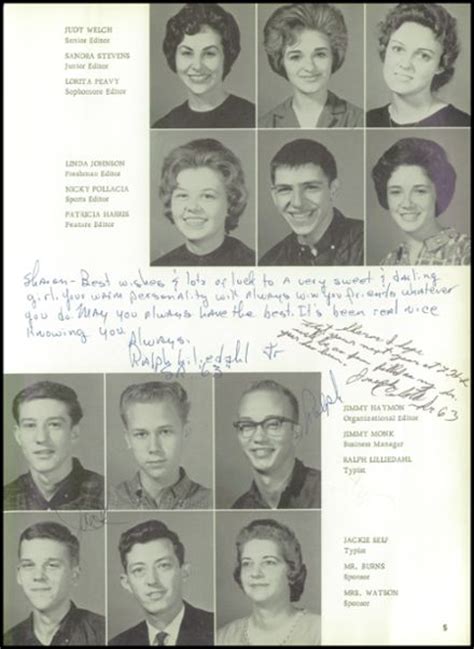 JUDY WELCH
Senior Editor
SANDRA STEVENS
Junior Editor
LORITA PEAVY
Sophomore Editor
LINDA JOHNSON
Freshman Editor
NICKY POLLACIA
Sports Editor
PATRICIA HARRIS
Feature Editor
Sharon - Best wishes & lots of luck to a very sweet & darling
girl. Your warm personality will always win you friends whatever
you do. May you always have the best. It's been real nice
knowing you
Always,
Ralph Lilliedahl Jr
Sr. 63
Sharon I hope
Joseph
Sr 63
Ralph
JIMMY HAYMON
Organizational Editor
JIMMY MONK
Business Manager
RALPH LILLIEDAHL
Typist
Jack
JACKIE SELF
Typist
MR. BURNS
Sponsor
MRS. WATSON
Sponsor
5